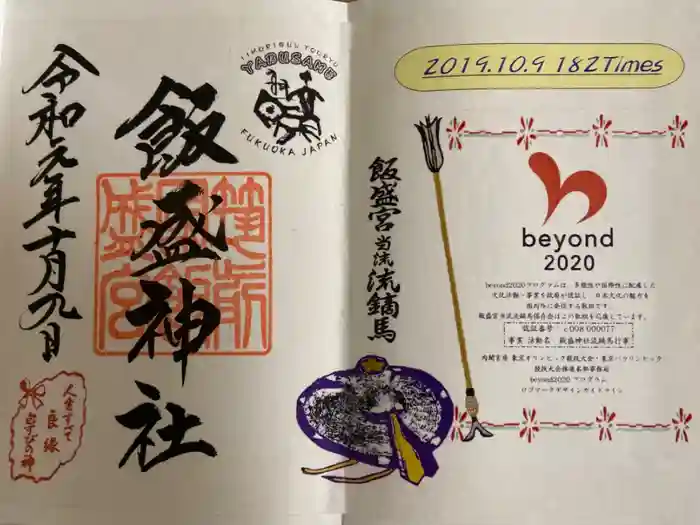 令和元年十月九日
飯盛神社
IIMORIGUU TOURYU
YABUSAME
FUKUOKA JAPAN
人をすべて
良縁
むすびの神
飯盛宮当流流鏑馬
2019.10.9 182Times
beyond
2020
beyond2020プログラムは、多様性や国際性に配慮した
文化活動・事業を政府が認証し、日本文化の魅力を
国内外に発信する取組です。
飯盛宮当流流鏑馬保存会はこの取組を応援しています。
認証番号 c098 000077
事業 活動名 飯盛神社流鏑馬行事
内閣官房 東京オリンピック競技大会・東京パラリンピック
競技大会推進本部事務局
beyond2020 プログラム
ロゴマークデザインガイドライン